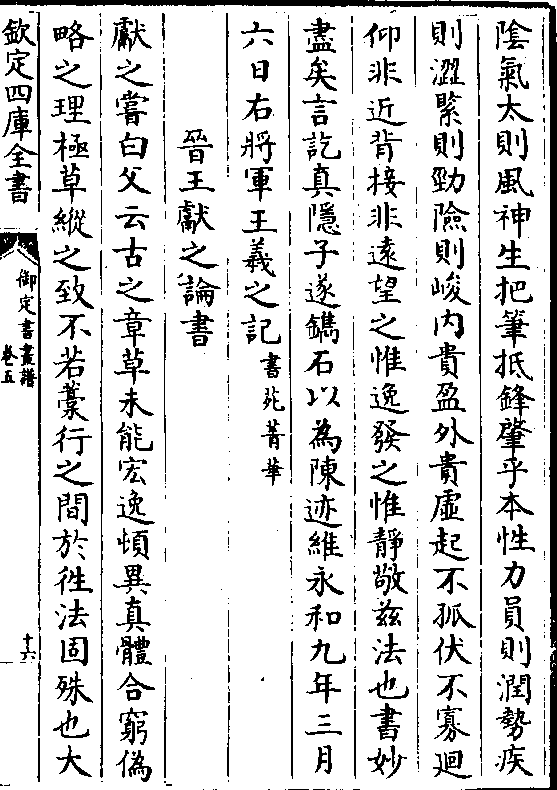 陰氣太則風神生把筆抵鋒肇乎本性力員則潤勢疾
則澀緊則勁險則峻内貴盈外貴虛起不孤伏不寡迴
仰非近背接非遠望之惟逸發之惟靜敬兹法也書妙
盡矣言訖真隱子遂鐫石以為陳迹維永和九年三月
六日右將軍王羲之記書苑菁華
晉王獻之論書
獻之嘗白父云古之章草未能宏逸頓異真體合窮偽
略之理極草縱之致不若藁行之間於徃法固殊也大
欽定四庫全書
御定書畫譜
卷五
十六